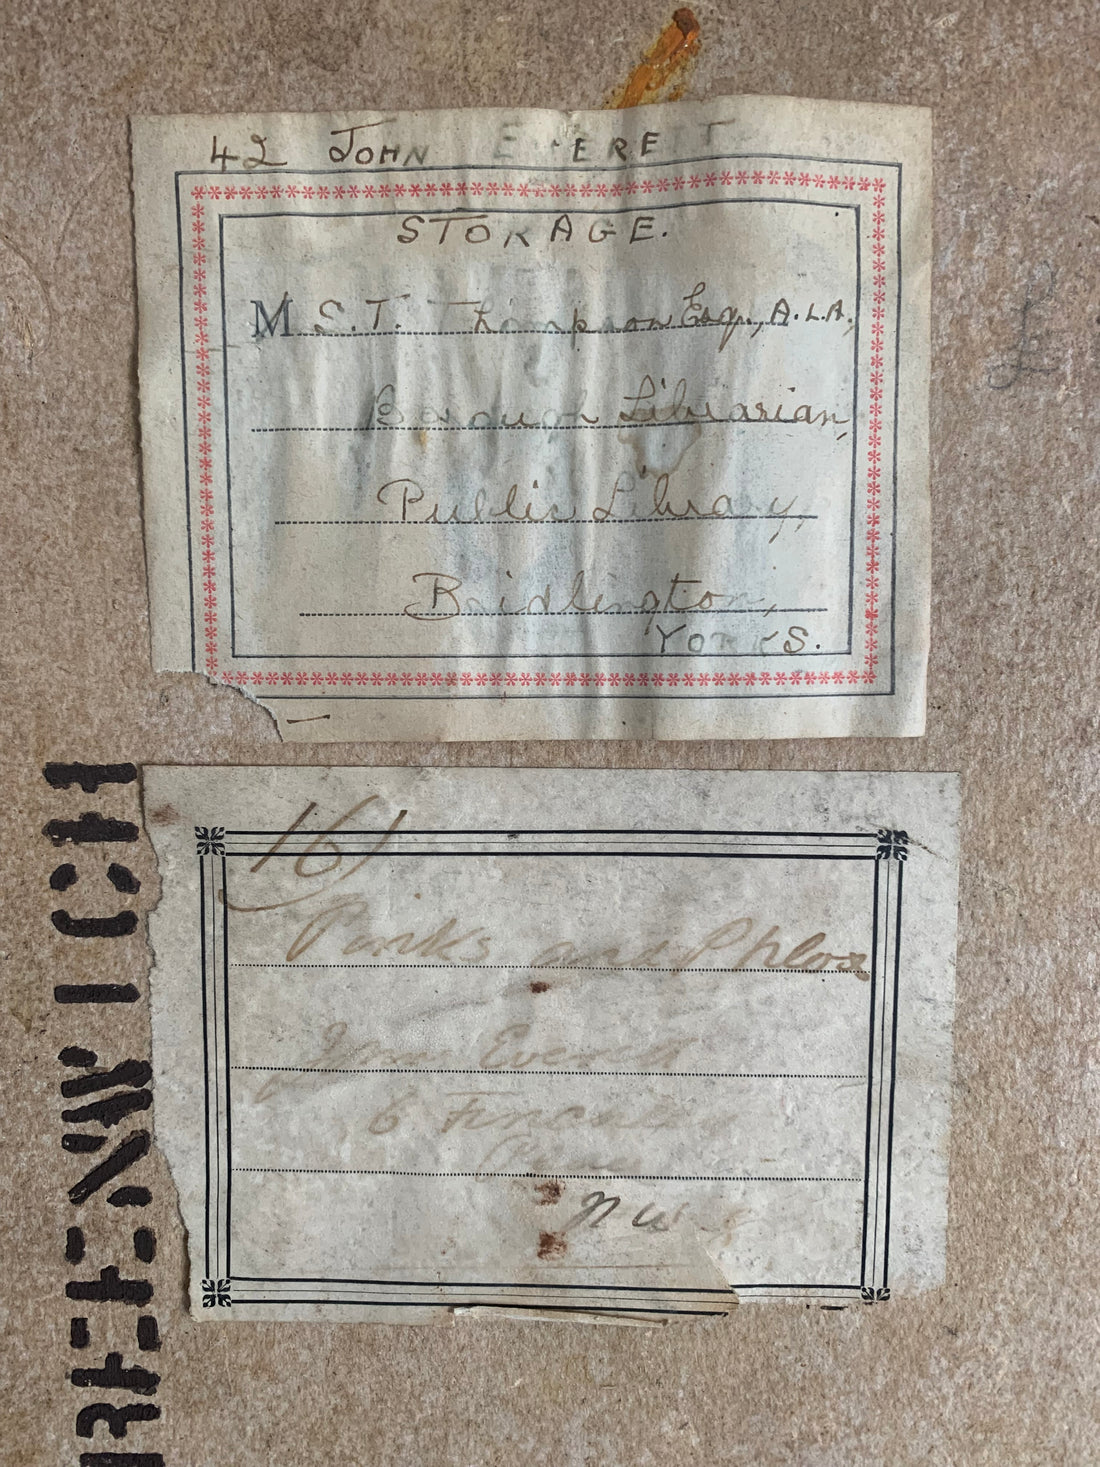 42 JOHN E ERE T
STORAGE.
M S.T. Thompson Esqr., A.L.A.,
Borough Librarian,
Public Library,
Bridlington,
YORKS.
16)
Pinks and Phlox
John Everett
6 Finchley
N W
REENWICH
£